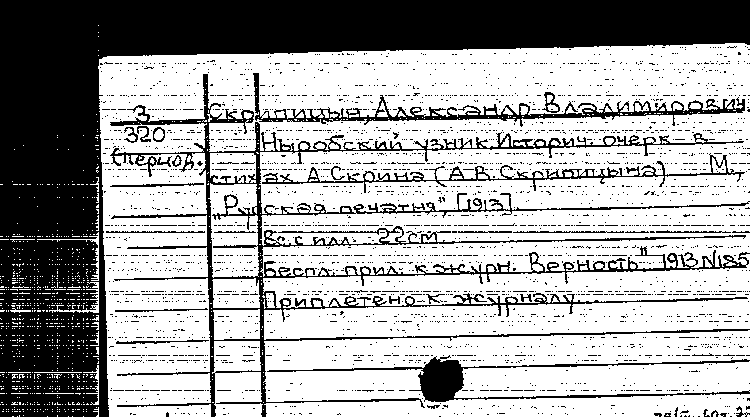 3 Скрипицын, Александр Владимирович.
320 Ныробский узник. Историч. очерк в
(период.) стихах А. Скрипа (А.В. Скрипицына) М.,
"Русская печатня", [1913].
8с. с илл. 22см.
Беспл. прил. к журн. Верность" 1913 №185
Приплетено к журналу.